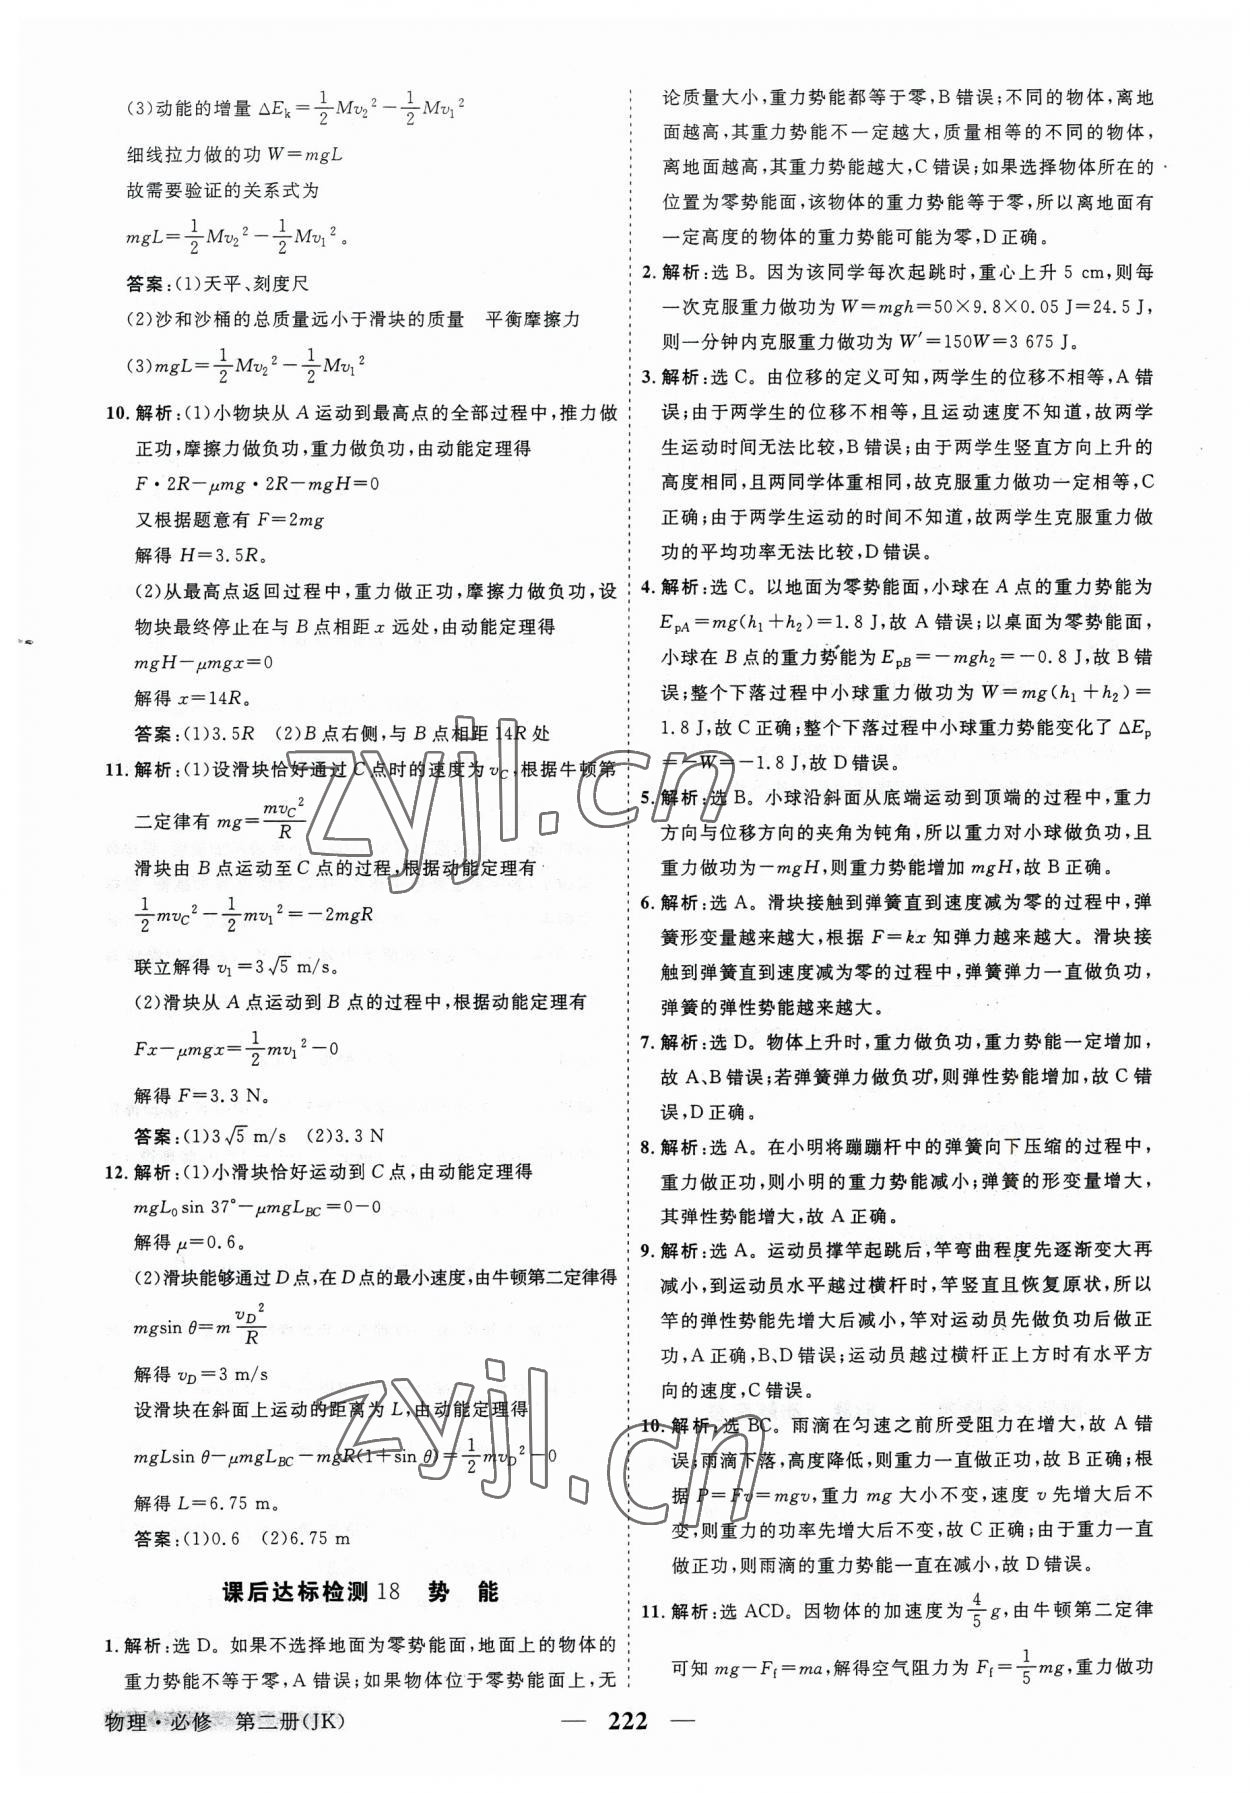 (3)动能的增量 ΔE_k=\frac{1}{2}Mv₂²-\frac{1}{2}Mv₁²
细线拉力做的功 W=mgL
故需要验证的关系式为
mgL=\frac{1}{2}Mv₂²-\frac{1}{2}Mv₁²。
答案:(1)天平、刻度尺
(2)沙和沙桶的总质量远小于滑块的质量 平衡摩擦力
(3)mgL=\frac{1}{2}Mv₂²-\frac{1}{2}Mv₁²
10. 解析:(1)小物块从 A 运动到最高点的全部过程中,推力做
正功,摩擦力做负功,重力做负功,由动能定理得
F·2R-μmg·2R-mgH=0
又根据题意有 F=2mg
解得 H=3.5R。
(2)从最高点返回过程中,重力做正功,摩擦力做负功,设
物块最终停止在与 B 点相距 x 远处,由动能定理得
mgH-μmgx=0
解得 x=14R。
答案:(1)3.5R (2)B 点右侧,与 B 点相距 14R 处
11. 解析:(1)设滑块恰好通过 C 点时的速度为 v_C,根据牛顿第
二定律有 mg=\frac{mv_C²}{R}
滑块由 B 点运动至 C 点的过程,根据动能定理有
\frac{1}{2}mv_C²-\frac{1}{2}mv₁²=-2mgR
联立解得 v₁=3√5 m/s。
(2)滑块从 A 点运动到 B 点的过程中,根据动能定理有
Fx-μmgx=\frac{1}{2}mv₁²-0
解得 F=3.3 N。
答案:(1)3√5 m/s (2)3.3 N
12. 解析:(1)小滑块恰好运动到 C 点,由动能定理得
mgL₀sin 37°-μmgL_{BC}=0-0
解得 μ=0.6。
(2)滑块能够通过 D 点,在 D 点的最小速度,由牛顿第二定律得
mgsin θ=m\frac{v_D²}{R}
解得 v_D=3 m/s
设滑块在斜面上运动的距离为 L,由动能定理得
mgLsin θ-μmgL_{BC}-mgR(1+sin θ)=\frac{1}{2}mv_D²-0
解得 L=6.75 m。
答案:(1)0.6 (2)6.75 m
课后达标检测 18 势 能
1. 解析:选 D。如果不选择地面为零势能面,地面上的物体的
重力势能不等于零,A 错误;如果物体位于零势能面上,无
论质量大小,重力势能都等于零,B 错误;不同的物体,离地
面越高,其重力势能不一定越大,质量相等的不同的物体,
离地面越高,其重力势能越大,C 错误;如果选择物体所在的
位置为零势能面,该物体的重力势能等于零,所以离地面有
一定高度的物体的重力势能可能为零,D 正确。
2. 解析:选 B。因为该同学每次起跳时,重心上升 5 cm,则每
一次克服重力做功为 W=mgh=50×9.8×0.05 J=24.5 J,
则一分钟内克服重力做功为 W′=150W=3 675 J。
3. 解析:选 C。由位移的定义可知,两学生的位移不相等,A 错
误;由于两学生的位移不相等,且运动速度不知道,故两学
生运动时间无法比较,B 错误;由于两学生竖直方向上升的
高度相同,且两同学体重相同,故克服重力做功一定相等,C
正确;由于两学生运动的时间不知道,故两学生克服重力做
功的平均功率无法比较,D 错误。
4. 解析:选 C。以地面为零势能面,小球在 A 点的重力势能为
E_{pA}=mg(h₁+h₂)=1.8 J,故 A 错误;以桌面为零势能面,
小球在 B 点的重力势能为 E_{pB}=-mgh₂=-0.8 J,故 B 错
误;整个下落过程中小球重力做功为 W=mg(h₁+h₂)=
1.8 J,故 C 正确;整个下落过程中小球重力势能变化了 ΔE_p
=-W=-1.8 J,故 D 错误。
5. 解析:选 B。小球沿斜面从底端运动到顶端的过程中,重力
方向与位移方向的夹角为钝角,所以重力对小球做负功,且
重力做功为-mgH,则重力势能增加 mgH,故 B 正确。
6. 解析:选 A。滑块接触到弹簧直到速度减为零的过程中,弹
簧形变量越来越大,根据 F=kx 知弹力越来越大。滑块接
触到弹簧直到速度减为零的过程中,弹簧弹力一直做负功,
弹簧的弹性势能越来越大。
7. 解析:选 D。物体上升时,重力做负功,重力势能一定增加,
故 A、B 错误;若弹簧弹力做负功,则弹性势能增加,故 C 错
误,D 正确。
8. 解析:选 A。在小明将蹦蹦杆中的弹簧向下压缩的过程中,
重力做正功,则小明的重力势能减小;弹簧的形变量增大,
其弹性势能增大,故 A 正确。
9. 解析:选 A。运动员撑竿起跳后,竿弯曲程度先逐渐变大再
减小,到运动员水平越过横杆时,竿竖直且恢复原状,所以
竿的弹性势能先增大后减小,竿对运动员先做负功后做正
功,A 正确,B、D 错误;运动员越过横杆正上方时有水平方
向的速度,C 错误。
10. 解析:选 BC。雨滴在匀速之前所受阻力在增大,故 A 错
误;雨滴下落,高度降低,则重力一直做正功,故 B 正确;根
据 P=Fv=mgv,重力 mg 大小不变,速度 v 先增大后不
变,则重力的功率先增大后不变,故 C 正确;由于重力一直
做正功,则雨滴的重力势能一直在减小,故 D 错误。
11. 解析:选 ACD。因物体的加速度为\frac{4}{5}g,由牛顿第二定律
可知 mg-F_f=ma,解得空气阻力为 F_f=\frac{1}{5}mg,重力做功
物理·必修 第二册(JK)
— 222 —
zyjl.cn
zyjl.cn